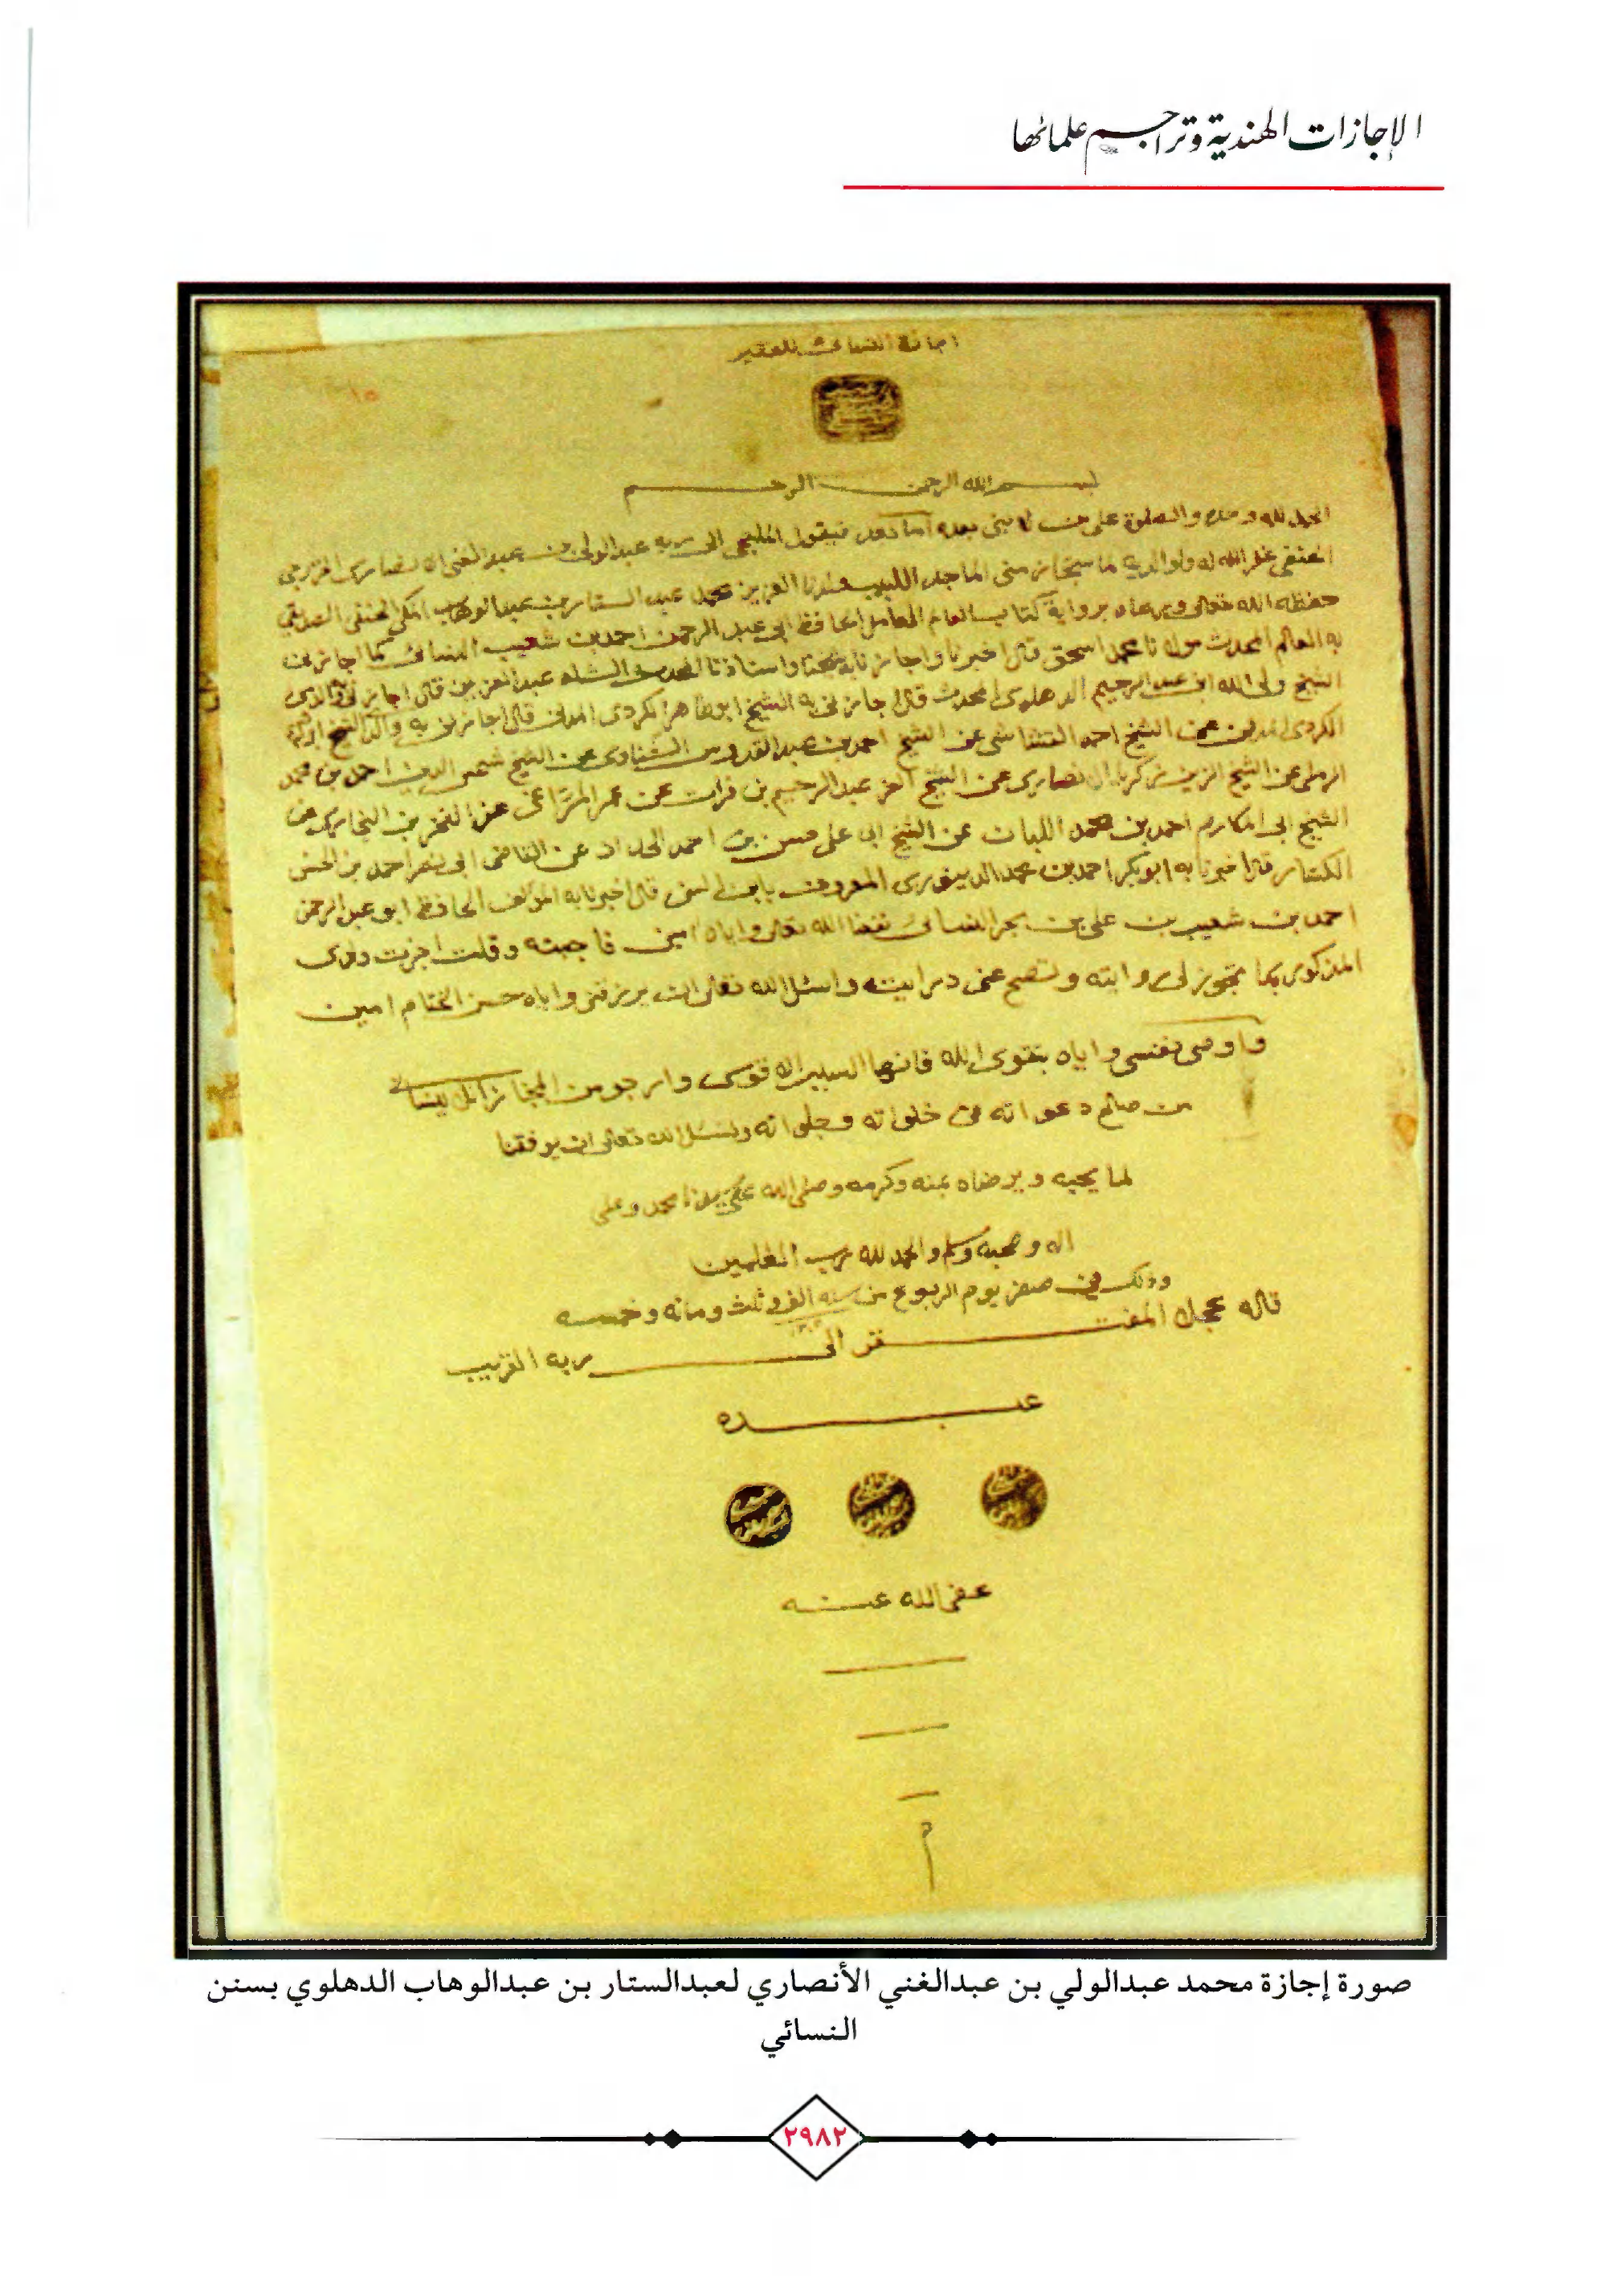 الإجازات الهندية وتراجم علمائها
اجازة النسائي للفقير
١٥
بسم الله الرحمن الرحيم
الحمد لله وحده والصلوة على من لا نبي بعده اما بعد فيقول الملتجي الى ربه عبد الولي بن عبد الغني الانصاري الخزرجي
الحنفي غفر الله له ولوالديه لما استجاز مني الماجد اللبيب العزيز محمد عبد الستار بن عبد الوهاب المكي الحنفي الصديقي
حفظه الله تعالى ورعاه برواية كتاب العالم العامل الحافظ ابي عبد الرحمن احمد بن شعيب النسائي كما اجازني
به العالم المحدث مولانا محمد اسحق قال اخبرنا واجازنا به شيخنا واستاذنا المحدث الشاه عبد العزيز قال اجازني والدي
الشيخ ولي الله ابن عبد الرحيم الدهلوي المحدث قال اجازني به الشيخ ابو طاهر الكردي المدني قال اجازني به والد الشيخ ابراهيم
الكردي المدني عن الشيخ احمد القشاشي عن الشيخ احمد بن عبد القدوس الشناوي عن الشيخ شمس الدين احمد بن محمد
الرملي عن الشيخ الزين زكريا الانصاري عن الشيخ العز عبد الرحيم بن فرات عن عمر المراغي عن الفخر بن البخاري عن
الشيخ ابي المكارم احمد بن محمد اللبان عن الشيخ ابي علي حسن بن احمد الحداد عن القاضي ابي نصر احمد بن الحسن
الكسار قال اخبرنا به ابو بكر احمد بن محمد الدينوري المعروف بابن السني قال اخبرنا به المؤلف الحافظ ابو عبد الرحمن
احمد بن شعيب بن علي بن بحر النسائي نفعنا الله تعالى واياه امين فاجبته وقلت اجزت ولدي
المذكور بما يجوز لي روايته وتصح عني درايته واسئل الله تعالى ان يرزقني واياه حسن الختام امين
واوصي نفسي واياه بتقوى الله فانها السبيل الاقوى وارجو من المجاز ان لا ينساني
من صالح دعواته في خلواته وجلواته ونسئل الله تعالى ان يوفقنا
لما يحبه ويرضاه بمنه وكرمه وصلى الله على سيدنا محمد وعلى
اله وصحبه وسلم والحمد لله رب العلمين
وذلك في صفر يوم الربوع من سنه الف وثلث ومائه وخمسه
١٣٠٥
قاله عجل المفتقر الى ربه القريب
عبده
عفى الله عنه
صورة إجازة محمد عبدالولي بن عبدالغني الأنصاري لعبدالستار بن عبدالوهاب الدهلوي بسنن
النسائي
٢٩٨٢